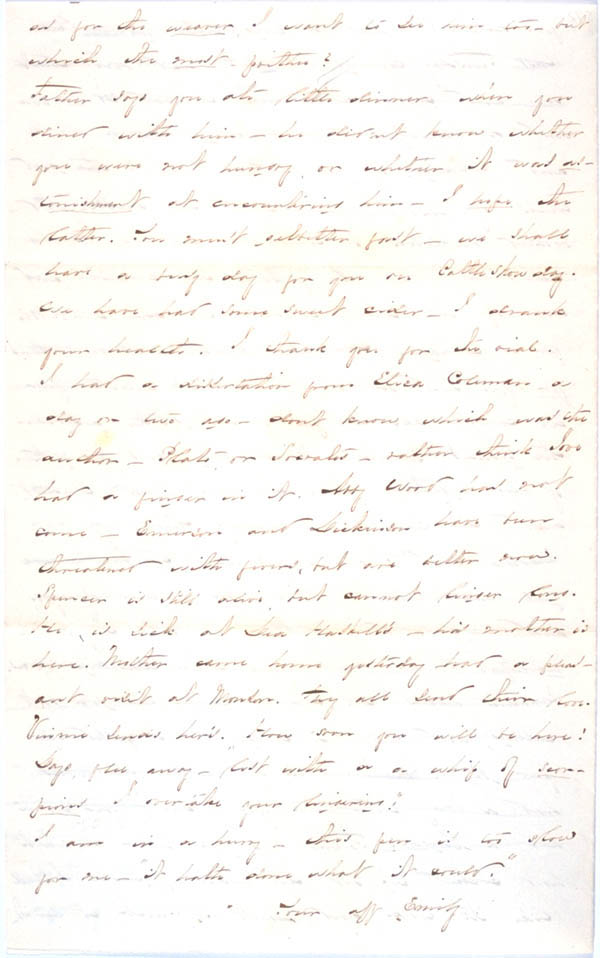 as for the weaver I want to see him too - but
which the most - prithee?
Father says you ate little dinner when you
dined with him - he didn't know whether
you were not hungry, or whether it was as-
tonishment at encountering him - I hope the
latter. You mus'nt satiate fast - we shall
have a busy day for you on Cattleshow day.
We have had some sweet cider - I drank
your health. I thank you for the vial.
I had a dissertation from Eliza Coleman a
day or two ago - dont know which was the
author - Plato, or Socrates - rather think Jove
had a finger in it. Abby Wood has not
come - Emerson and Dickinson have been
threatened with fevers, but are better now.
Spencer is still alive, but cannot linger long.
He is sick at Dea Haskell's - his mother is
here. Mother came home yesterday had a pleas-
ant visit at Monson. They all send their love.
Vinnie sends her's. How soon you will be here!
Days, flee away - "lest with a a whip of scor-
pions I overtake your lingering!"
I am in a hurry - this pen is too slow
for me - "it hath done what it could."
Your aff Emily